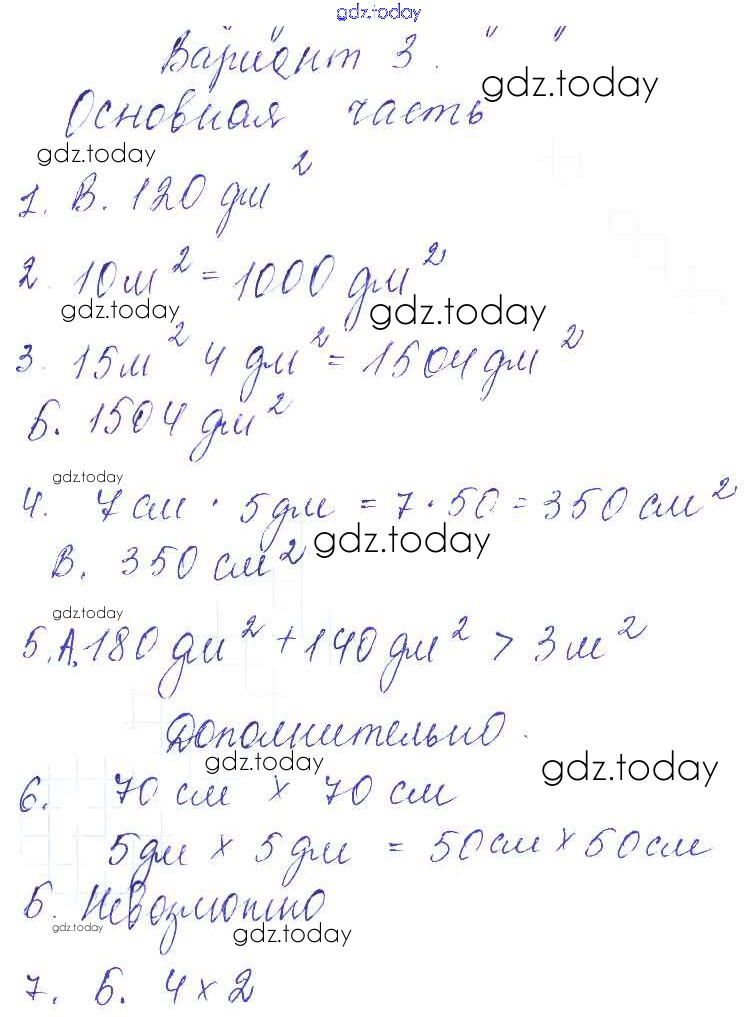 gdz.today
Вариант 3. " "
gdz.today
Основная часть
gdz.today
1. В. 120 дм²
2. 10 м² = 1000 дм²
gdz.today gdz.today
3. 15 м² 4 дм² = 1504 дм²
Б. 1504 дм²
gdz.today
4. 7 см · 5 дм = 7 · 50 = 350 см²
В. 350 см² gdz.today
gdz.today
5. А. 180 дм² + 140 дм² > 3 м²
Дополнительно.
gdz.today gdz.today
6. 70 см × 70 см
5 дм × 5 дм = 50 см × 50 см
Б. Невозможно
gdz.today gdz.today
7. Б. 4 × 2